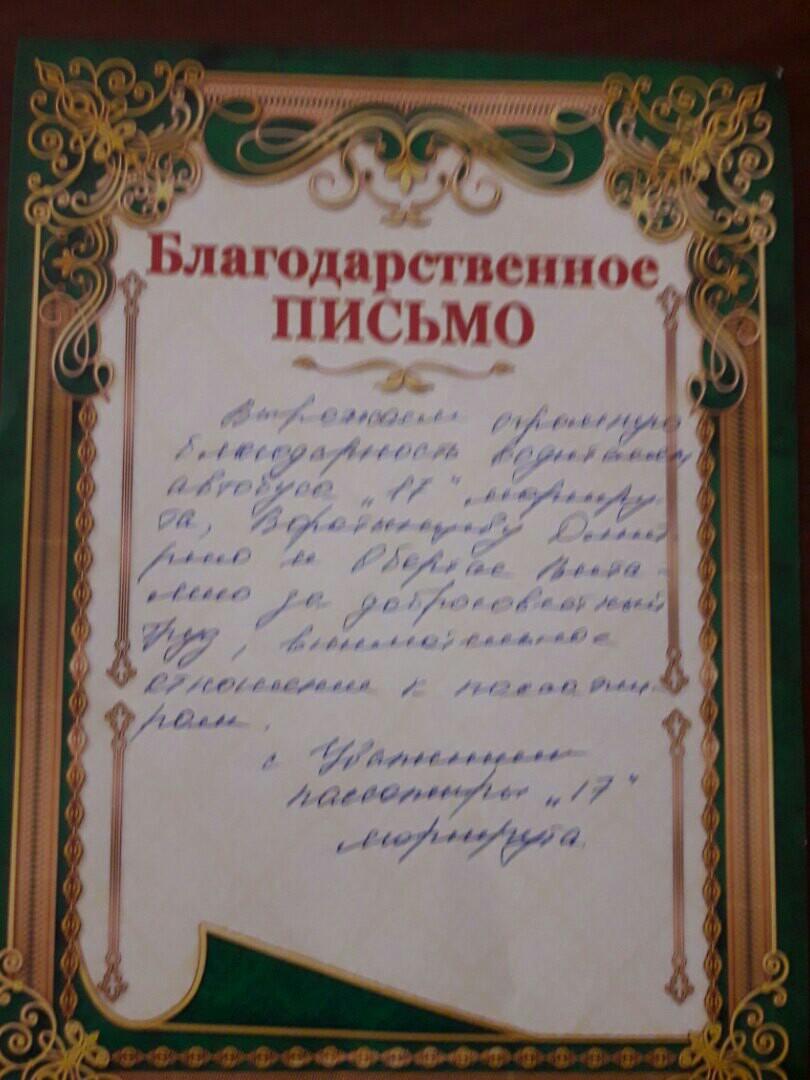 Благодарственное
ПИСЬМО
Выражаем огромную
благодарность водителям
автобуса „17" маршру-
та, Дмит-
рию и Вита-
лию за добросовестный
труд, внимательное
отношение к пассажи-
рам.
с Уважением
пассажиры „17"
маршрута.